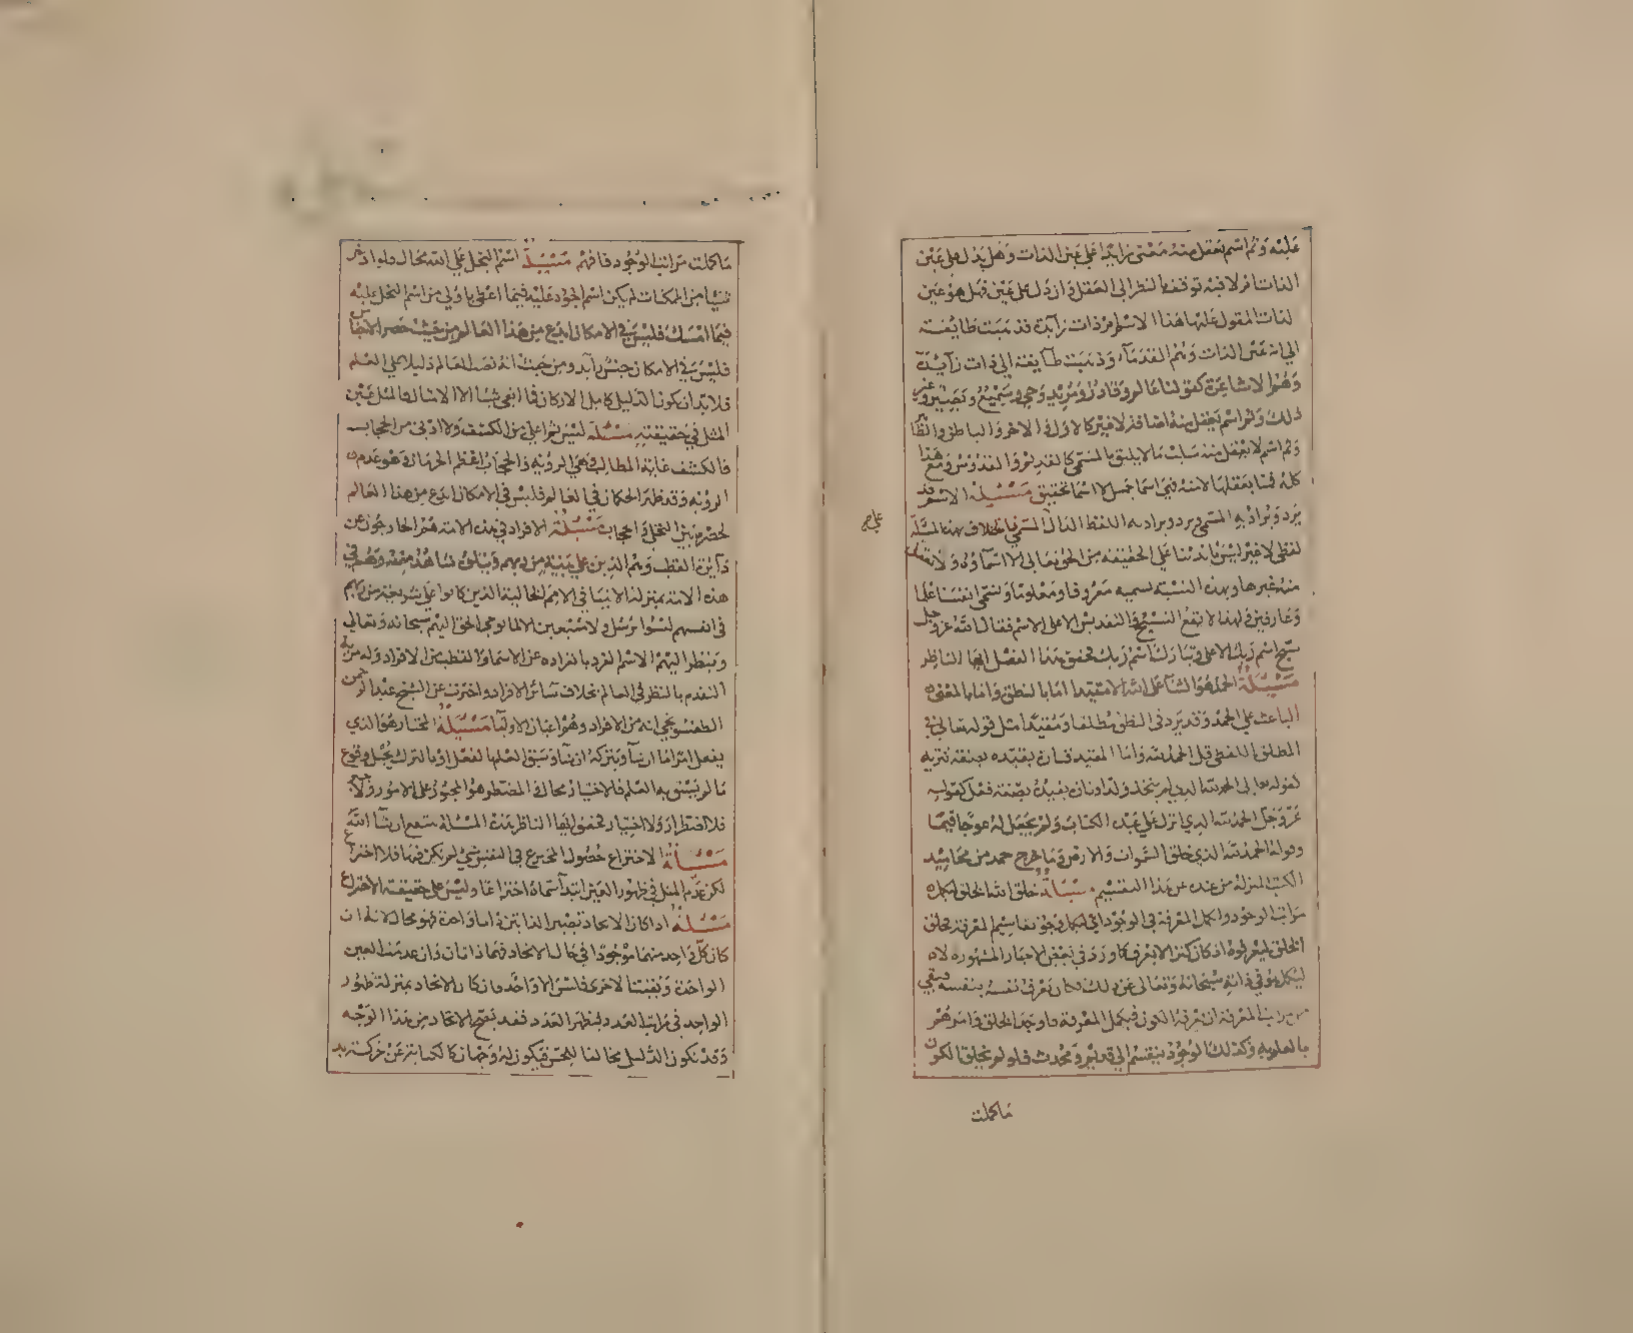 عليه وثم اسم يعقل منه معنى زايدا على عين الذات وهل يدل على عين
الذات ام لا فيه توقف بالنظر الى العقل وان دل على عين فهل هو عين
الذات المقول عليها هذا الاسم ام ذات زايدة قد ذهبت طايفة
الى انه عين الذات وهم القدماء وذهبت طايفة الى ذات زايدة
وهو الاشاعرة كقولنا عالم وقادر ومريد وحي وسميع وبصير وغير
ذلك وثم اسم يعقل منه اضافة لا غير كالاول والاخر والباطن والظا
وثم اسم لا يعقل منه سلب ما لا يليق بالمسمى كالقديم والقدوس ومع هذا
كله مسئلة الاسم قد
يرد ويراد به المسمى ويرد ويراد به اللفظ الدال المسئلة
لفظي لا غير ليس بايدينا على الحقيقة من الحق تعالى الا اسماؤه ولا نعقل
منه غيرها وبهذه النسبة نسميه معروفا ومعلوما ونسمي انفسنا علما
وعارفين ولهذا لا يقع التسبيح والتقديس الا على الاسم فقال الله عز وجل
سبح اسم ربك الاعلى وتبارك اسم ربك فحقق هذا الفصل ايها الناظر
مسئلة الحمد هو الثنا على الله الا مقيدا اما بالنطق واما بالمعنى
الباعث على الحمد وقد يرد في النطق مطلقا ومقيدا مثل قوله تعالى في
المطلق اللفظي قل الحمد لله واما المقيد فبان يقيده بصفة تنزيه
كقوله تعالى الحمد لله الذي لم يتخذ ولدا وبان يقيد بصفة فعل كقوله
عز وجل الحمد لله الذي انزل على عبده الكتاب ولم يجعل له عوجا قيما
وقوله الحمد لله الذي خلق السموات والارض وما خرج حمد من محاميد
الكتب المنزلة من عنده عن هذا التقسيم مسئلة خلق الله الخلق
مراتب الوجود وليكمل المعرفة في الوجود تقاسيم المعرفة فخلق
الخلق ليعرفوه اذ كان كنزا لا يعرف كما ورد في بعض الاخبار المشهورة لا
ليكمل هو في ذاته سبحانه وتعالى عن ذلك فكان يعرف نفسه بنفسه وبقي
من مراتب المعرفة ان يعرفه الكون فتكمل المعرفة فاوجد الخلق وامرهم
بالعلم به وكذلك الوجود ينقسم الى قديم ومحدث فلو لم يخلق الكون
ما كملت
ما كملت مراتب الوجود فافهم مسئلة اسم البخل على الله محال ولو ادخر
شيئا من الممكنات لم يكن اسم الجود عليه فيما اعطى باولى من اسم البخل عليه
فيما امسك فليس في الامكان ابدع من هذا العالم من حيث حصر الاجناس
فليس في الامكان جنس زايد ومن حيث انه نصب العالم دليلا على العلم
فلا بد ان يكون الدليل كامل الاركان فما بقي شيا الا الامثال والمثل عين
المثل في حقيقته مسئلة ليس ثم اعلى من الكشف ولا ادنى من الحجاب
فالكشف غاية المطالب وهي الروية والحجاب اعظم الحرمان وهو عدم
الروية وقد ظهر الحكمان في العالم فليس في الامكان ابدع من هذا العالم
لحصره بين التجلي والحجاب مسئلة الافراد في هذه الامة هم الخارجون عن
دايرة القطب وهم الذين على بينة من ربهم ويتلوه شاهد منه وهم في
هذه الامة بمنزلة الانبيا في الامم الخالية الذين كانوا على شريعة من ربهم
في انفسهم ليسوا برسل ولا متبعين الا لما يوحي الحق اليهم سبحانه وتعالى
وينظر اليهم الاسم الفرد بانفراده عن الاسما والقطب من الافراد وله مزية
التقدم بالنظر في العالم بخلاف سائر الافراد واخبرت عن الشيخ عبد الرحمن
الطفسونجي انه من الافراد وهو اعيان الاوليا مسئلة المختار هو الذي
يفعل امرا ما ان شاء ويتركه ان شاء وسبق العلم بالفعل او بالترك يحيل وقوع
ما لم يسبق به العلم فالاختيار محال والمضطر هو المجبور على الامور ولا جبر
فلا اضطرار ولا اختيار فحقق ايها الناظر هذه المسئلة تنتفع ان شاء الله
مسئلة الاختراع حصول المخترع في النفس شي لم يكن فيها فلا اختراع
لكن عدم المثل في ظهور العين ابتدا سماه اختراعا وليس على حقيقة الاختراع
مسئلة اذا كان الاتحاد تصيير الذاتين ذاتا واحدة فهو محال لانه ان
كان كل واحد منهما موجودا في حال الاتحاد فهما ذاتان وان عدمت العين
الواحدة وبقيت الاخرى فليس الا واحد وان كان الاتحاد بمنزلة ظهور
الواحد في مراتب العدد فيظهر العدد فقد يصح الاتحاد من هذا الوجه
وقد يكون الدليل مخالفا للحس فيكون له وجهان كالكتابة عن حركة يد